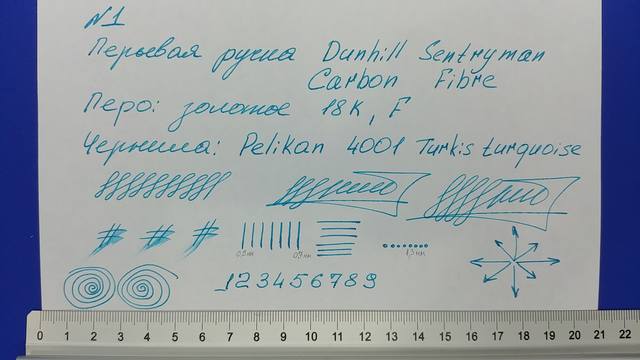 №1
Перьевая ручка Dunhill Sentryman
Carbon Fibre
Перо: золотое 18K, F
Чернила: Pelikan 4001 Turkis turquoise
0,5мм 1,3 мм
123456789
0 1 2 3 4 5 6 7 8 9 10 11 12 13 14 15 16 17 18 19 20 21 22